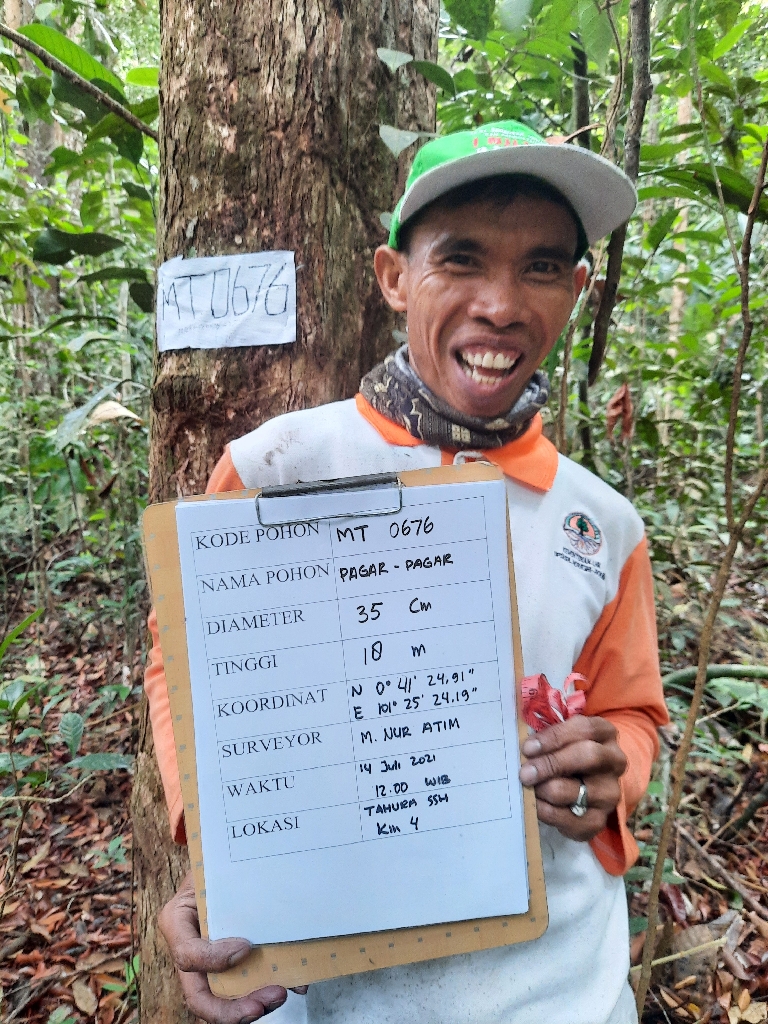 MT 0676
KODE POHON MT 0676
NAMA POHON PAGAR - PAGAR
DIAMETER 35 Cm
TINGGI 18 m
KOORDINAT N 0° 41' 24,91"
E 101° 25' 24.19"
SURVEYOR M. NUR ATIM
WAKTU 14 Juli 2021
12.00 WIB
LOKASI TAHURA SSH
Km 4